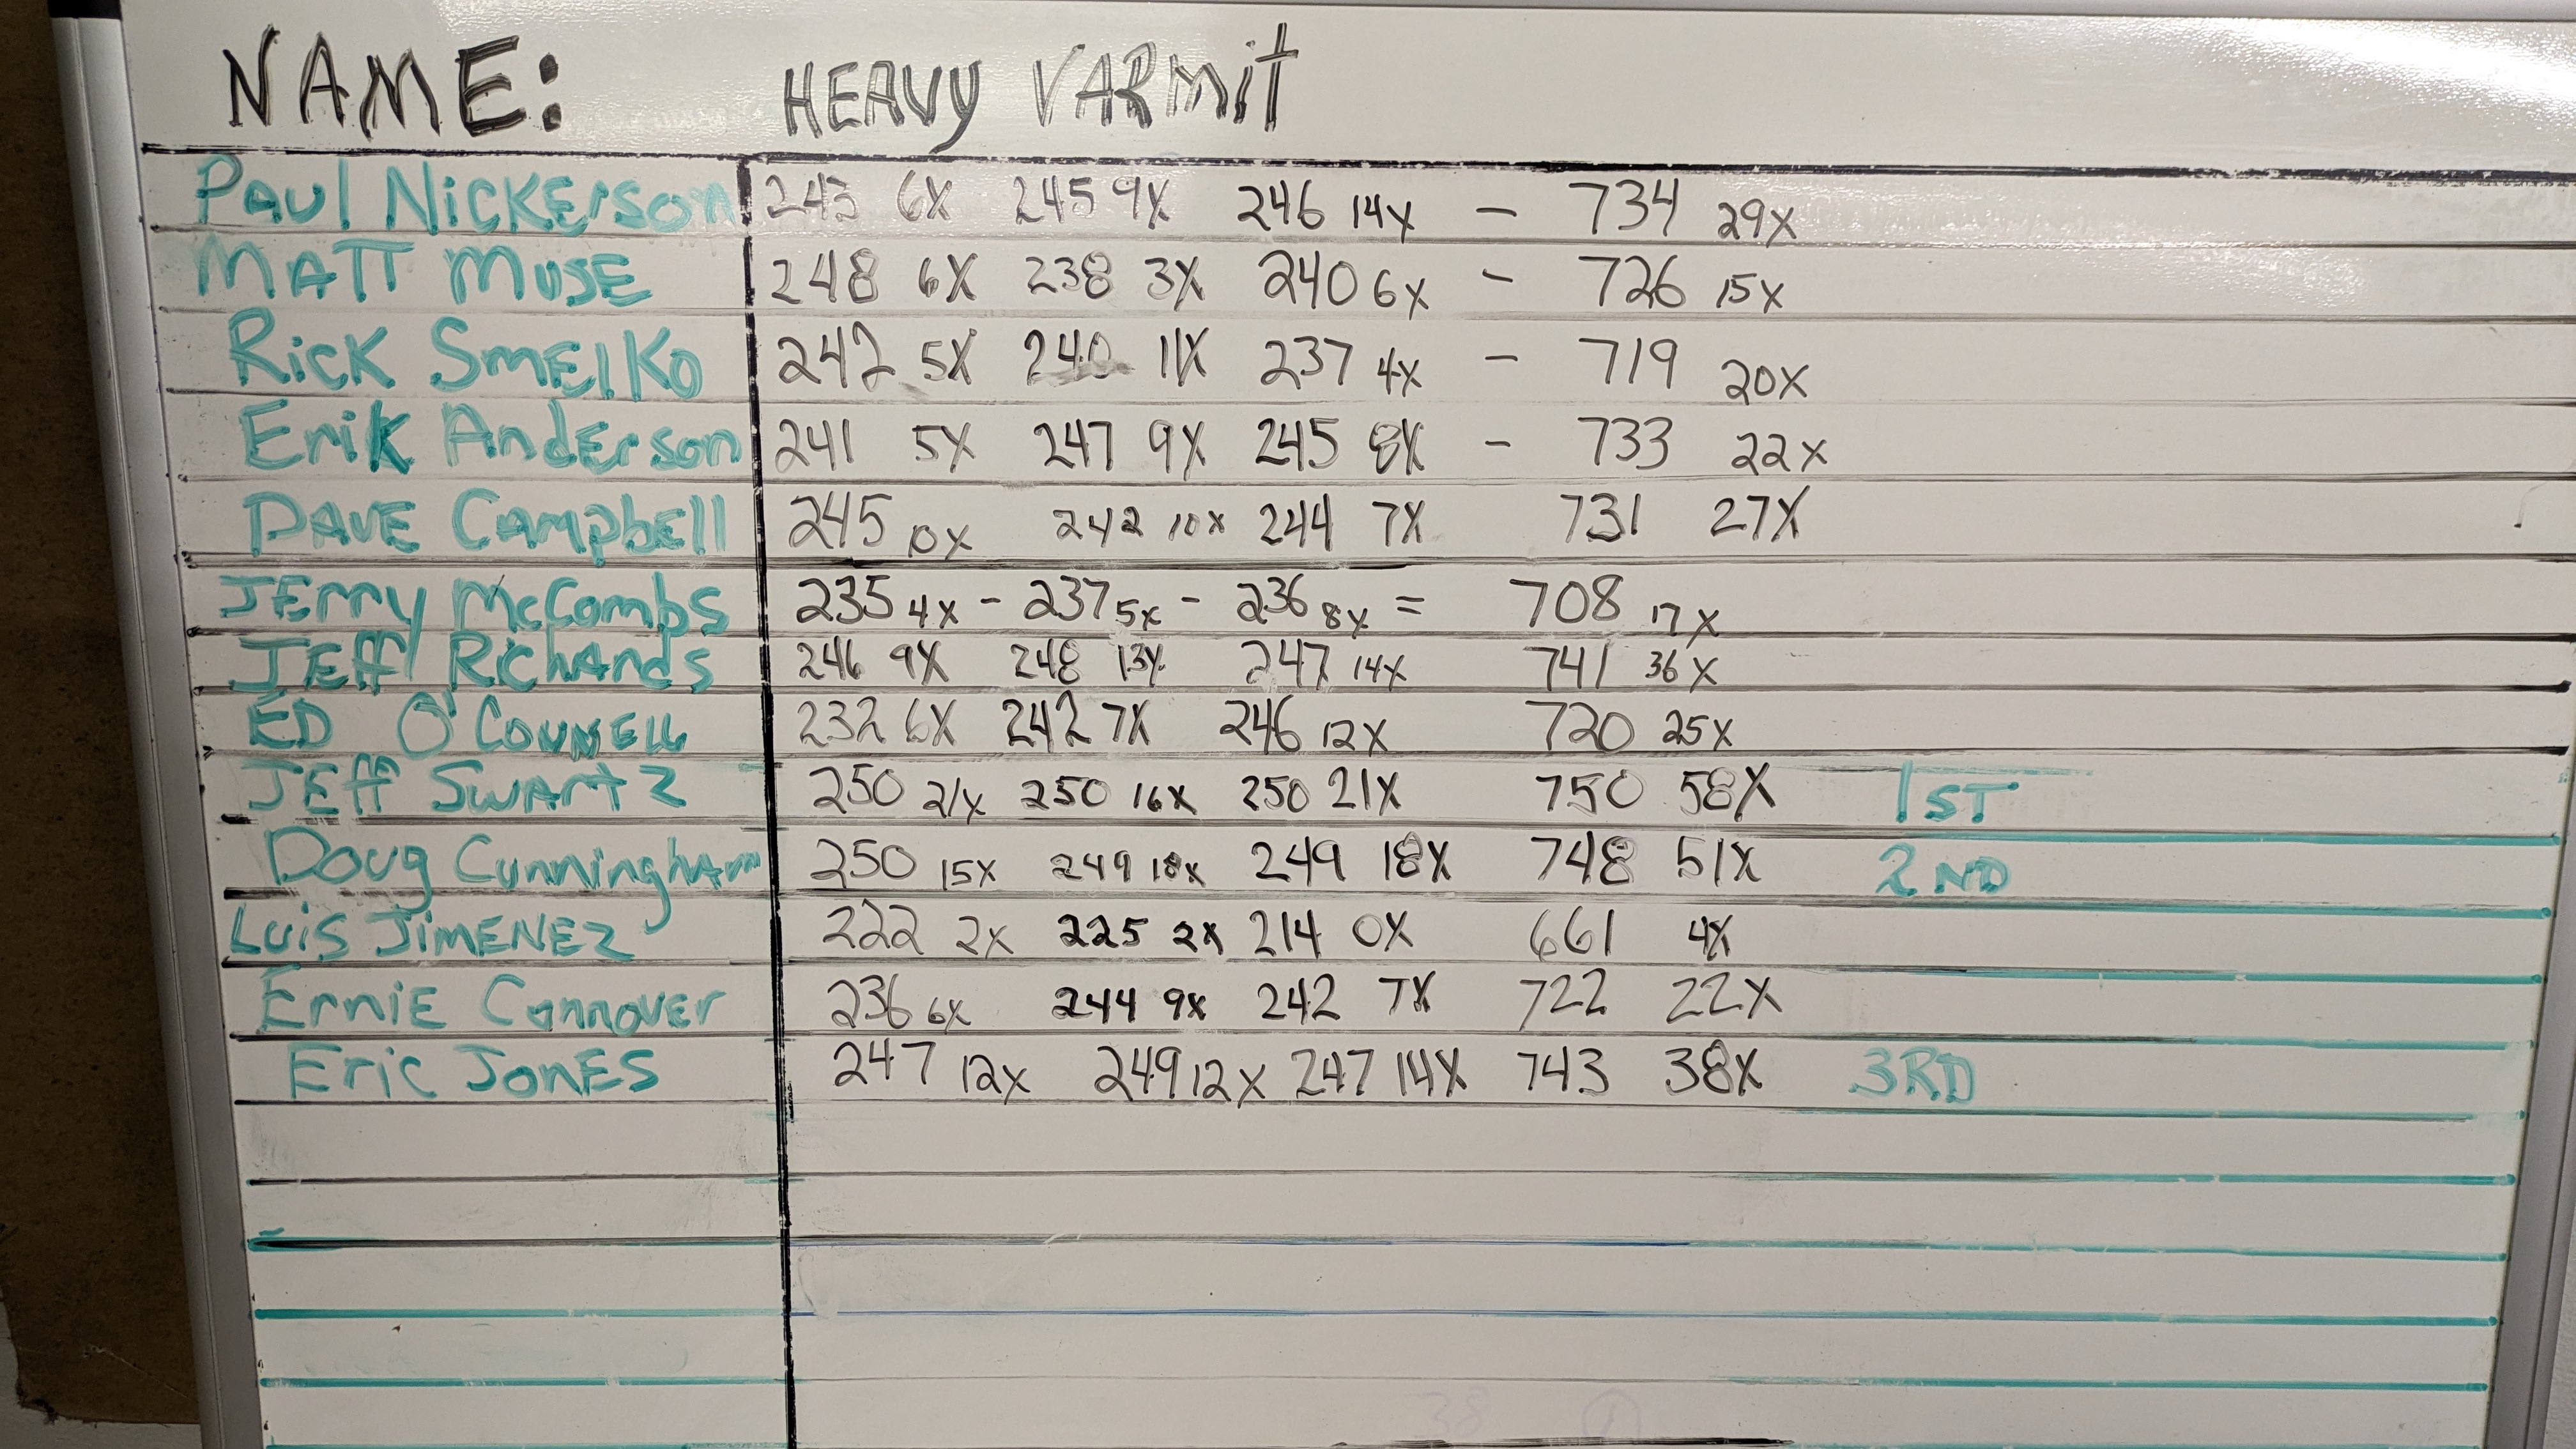 NAME: HEAVY VARMIT
PAUL NICKERSON 243 6X 245 9X 246 14X - 734 29X
MATT MUSE 248 6X 238 3X 240 6X - 726 15X
RICK SMELKO 242 5X 240 11X 237 4X - 719 20X
Erik Anderson 241 5X 247 9X 245 8X - 733 22X
DAVE CAMPbELL 245 10X 242 10X 244 7X 731 27X
JErry McCombs 235 4X - 237 5X - 236 8X = 708 17X
JEff RichArds 246 9X 248 13X 247 14X 741 36X
ED O'CONNELL 232 6X 242 7X 246 12X 720 25X
JEff SWArtZ 250 21X 250 16X 250 21X 750 58X 1ST
Doug Cunningham 250 15X 249 18X 249 18X 748 51X 2ND
LUIS JIMENEZ 222 2X 225 2X 214 0X 661 4X
ErniE Connover 236 6X 244 9X 242 7X 722 22X
Eric JONES 247 12X 249 12X 247 14X 743 38X 3RD
38